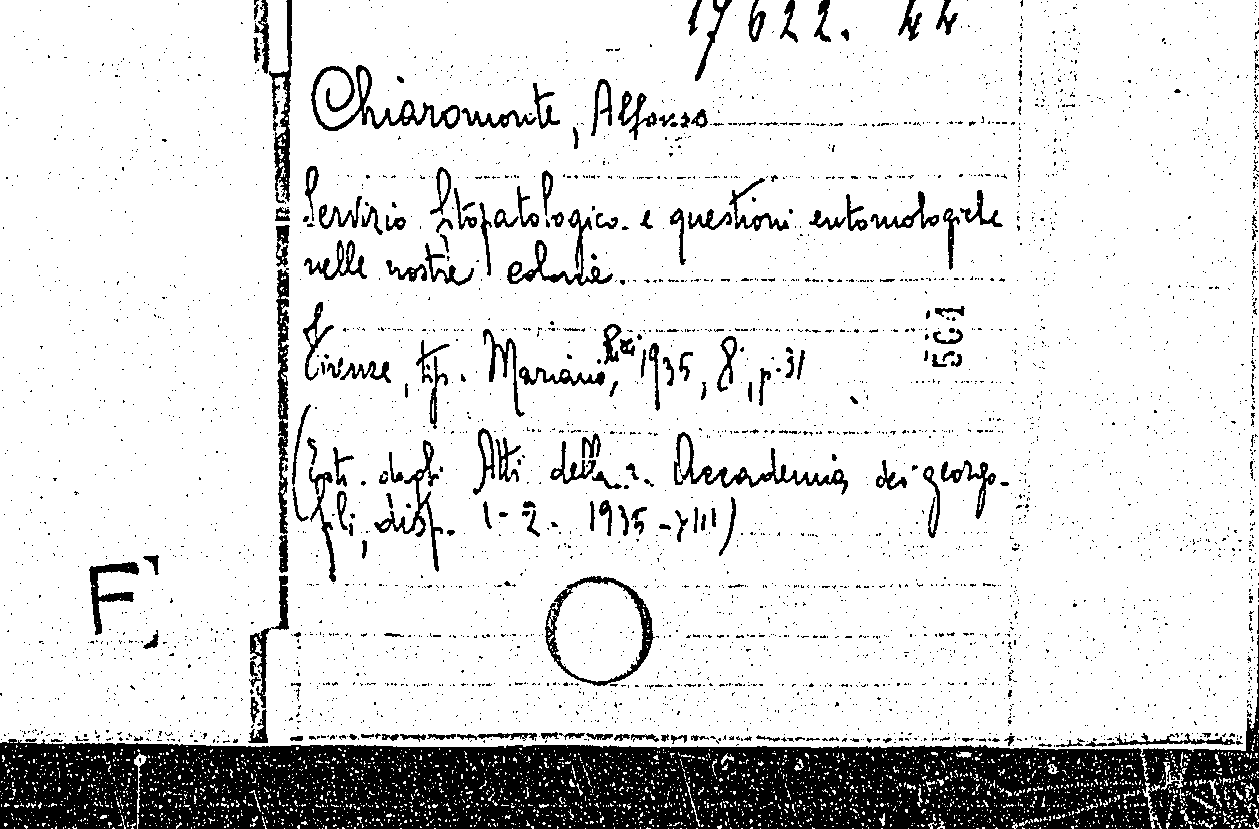 17622. 44
Chiaromonte, Alfonso
Servizio fitopatologico e questioni entomologiche
nelle nostre colonie.
Firenze, tip. Mariano Ricci, 1935, 8°, p. 31
504
(Estr. dagli Atti della r. Accademia dei georgo-
fili, disp. 1-2. 1935-XIII)
F